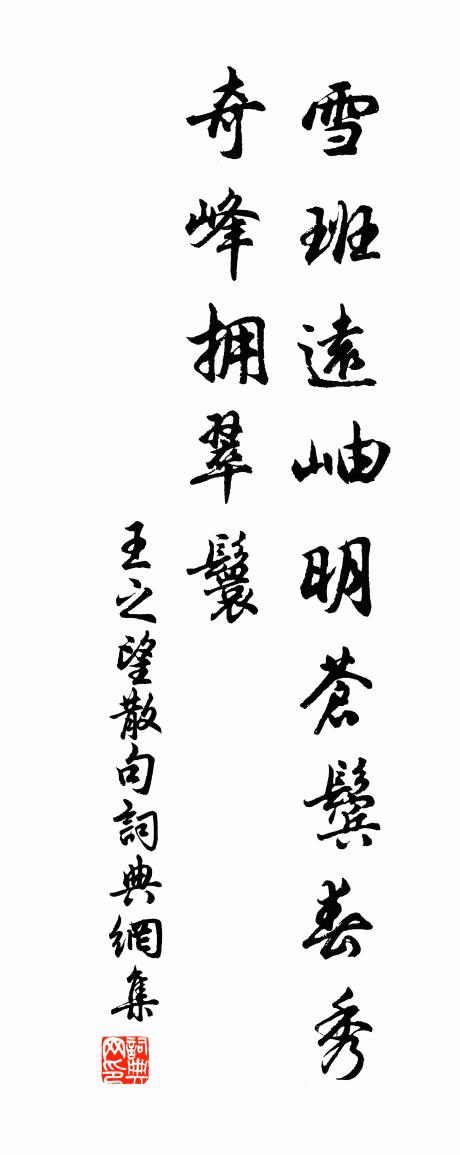 雪班遠岫明蒼鬢春秀
奇峰拥翠鬟
王之望散句詞典網集
詞典网印